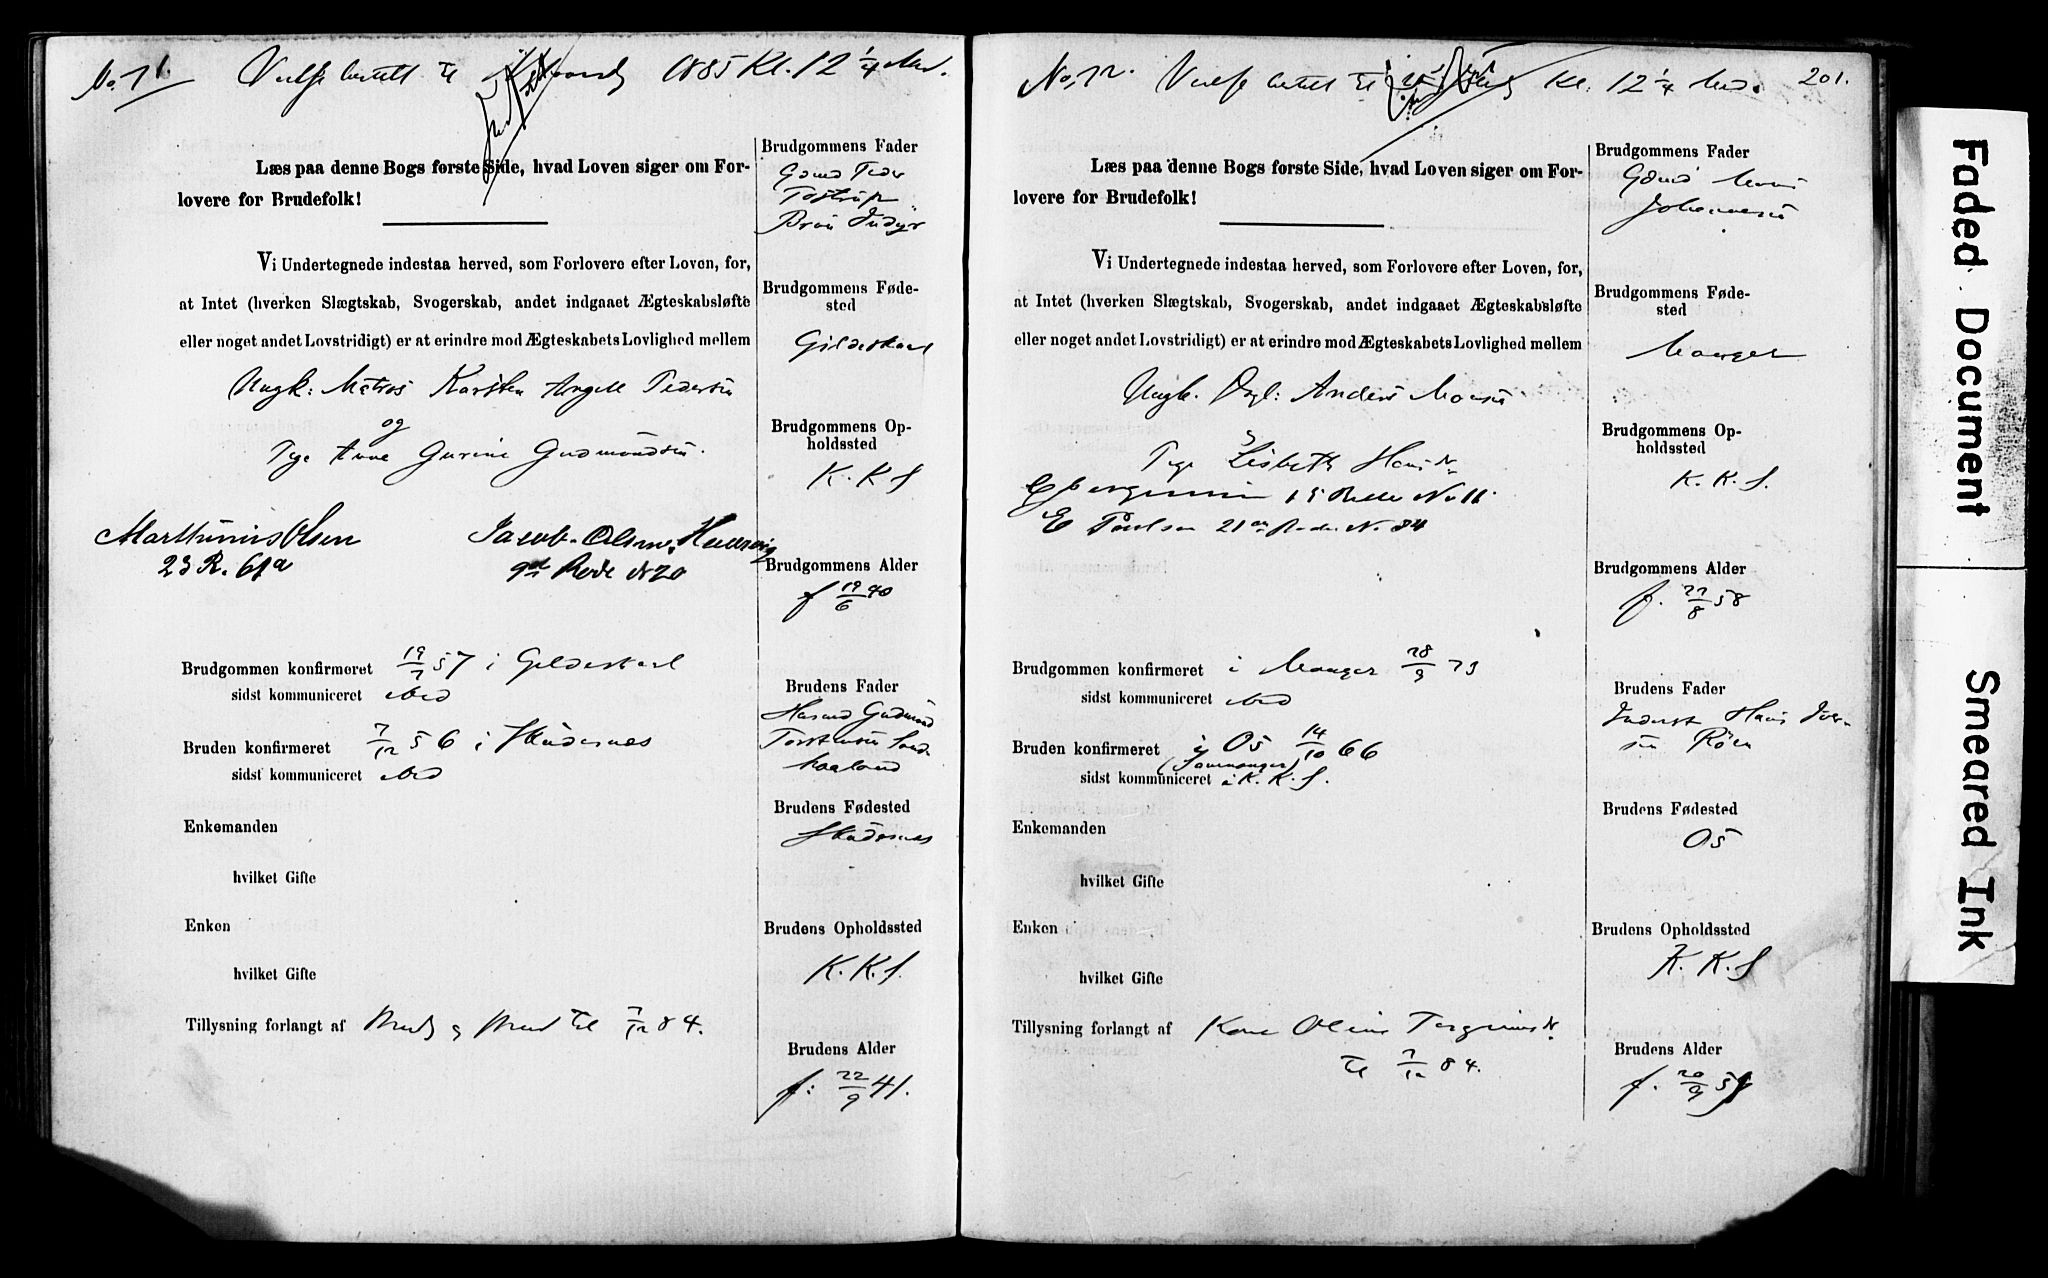 No. 71. Vielse bestilt til 1885 Kl. 12 1/4 Md.
Læs paa denne Bogs første Side, hvad Loven siger om For-
lovere for Brudefolk!
Vi Undertegnede indestaa herved, som Forlovere efter Loven, for,
at Intet (hverken Slægtskab, Svogerskab, andet indgaaet Ægteskabsløfte
eller noget andet Lovstridigt) er at erindre mod Ægteskabets Lovlighed mellem
Ungk: Matros Karsten Angell Pedersen
og
Pige Anne Gurine Gudmundsen.
Marthinus Olsen Jacob Olsen
23 R. 61a 9de Rode No 20
Brudgommen konfirmeret 19/7 57 i Gildeskaal
sidst kommuniceret
Bruden konfirmeret 7/12 56 i Skudesnes
sidst kommuniceret
Enkemanden
hvilket Gifte
Enken
hvilket Gifte
Tillysning forlangt af til 7/12 84.
Brudgommens Fader
Gmd Peder
Brudgommens Føde-
sted
Gildeskaal
Brudgommens Op-
holdssted
K. K. S
Brudgommens Alder
f 19/6 40
Brudens Fader
Husmd Gudmund
Brudens Fødested
Skudesnes
Brudens Opholdssted
K. K. S.
Brudens Alder
f: 22/9 41.
No. 72. Vielse bestilt til Kl. 12 1/4 Md. 201.
Læs paa denne Bogs første Side, hvad Loven siger om For-
lovere for Brudefolk!
Vi Undertegnede indestaa herved, som Forlovere efter Loven, for,
at Intet (hverken Slægtskab, Svogerskab, andet indgaaet Ægteskabsløfte
eller noget andet Lovstridigt) er at erindre mod Ægteskabets Lovlighed mellem
Ungk. Anders Monsen
og
Pige Lisbeth Hansdr
15 Rode No 11.
E Poulsen 21de Rode No. 84
Brudgommen konfirmeret i Manger 28/9 73
sidst kommuniceret
Bruden konfirmeret i Os 14/10 66
sidst kommuniceret i K. K. S.
Enkemanden
hvilket Gifte
Enken
hvilket Gifte
Tillysning forlangt af Kone Oline Torgrimsdr.
til 7/12 84.
Brudgommens Fader
Gmd Mons
Johannesen
Brudgommens Føde-
sted
Manger
Brudgommens Op-
holdssted
K. K. S.
Brudgommens Alder
f. 22/8 58
Brudens Fader
Inderst Hans Iver-
sen Røen
Brudens Fødested
Os
Brudens Opholdssted
K. K. S
Brudens Alder
f. 20/9
Faded Document
Smeared Ink